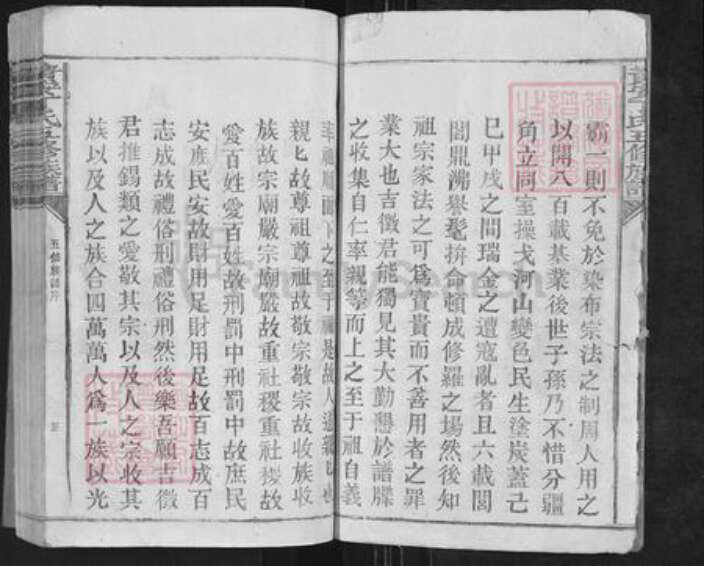 霸一則不免於染布宗法之制周人用之
以開八百載基業後世子孫乃不惜分疆
角立同室操戈河山變色民生塗炭蓋己
巳甲戌之間瑞金之遭寇亂者且六載閭
閻鼎沸譽髦拚命頓成修羅之場然後知
祖宗家法之可爲寶貴而不善用者之罪
業大也吉徵君能獨見其大勤懇於譜牒
之收集自仁率親等而上之至于祖自義
率祖順而下之至于禰是故人道親親也
親親故尊祖尊祖故敬宗敬宗故收族收
族故宗廟嚴宗廟嚴故重社稷重社稷故
愛百姓愛百姓故刑罰中刑罰中故庶民
安庶民安故財用足財用足故百志成百
志成故禮俗刑禮俗刑然後樂吾願吉徵
君推錫類之愛敬其宗以及人之宗收其
族以及人之族合四萬萬人爲一族以光
五修族譜序